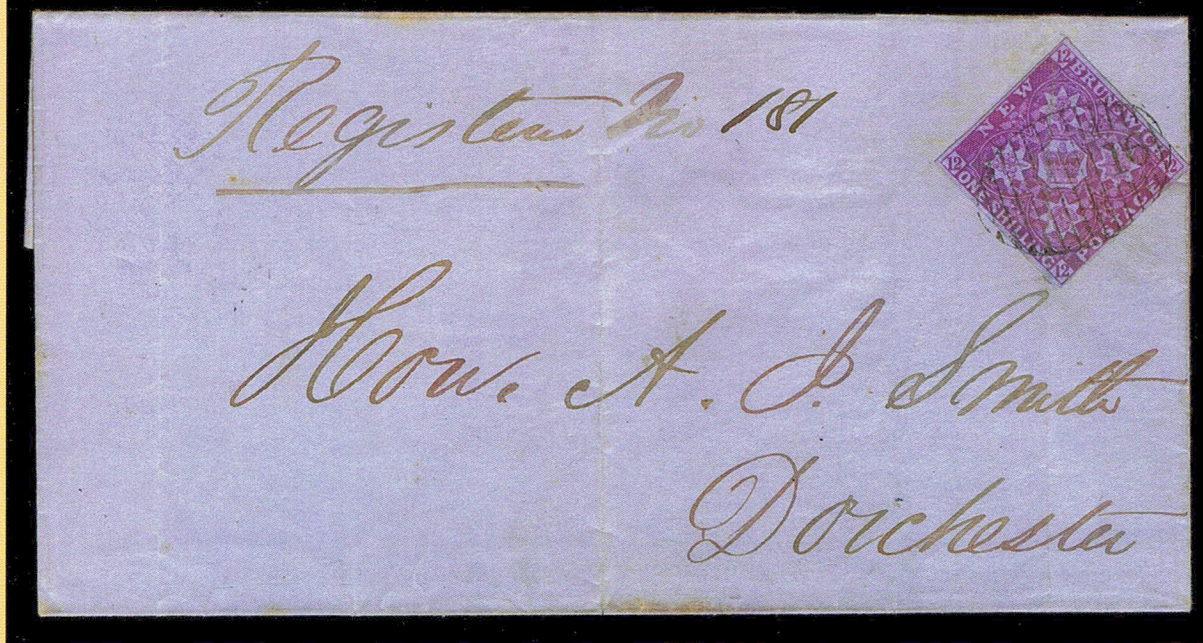 Register No 181
12
NEW BRUNSWICK
12 12
ONE SHILLING POSTAGE
12
15
Hon. A. J. Smith
Dorchester